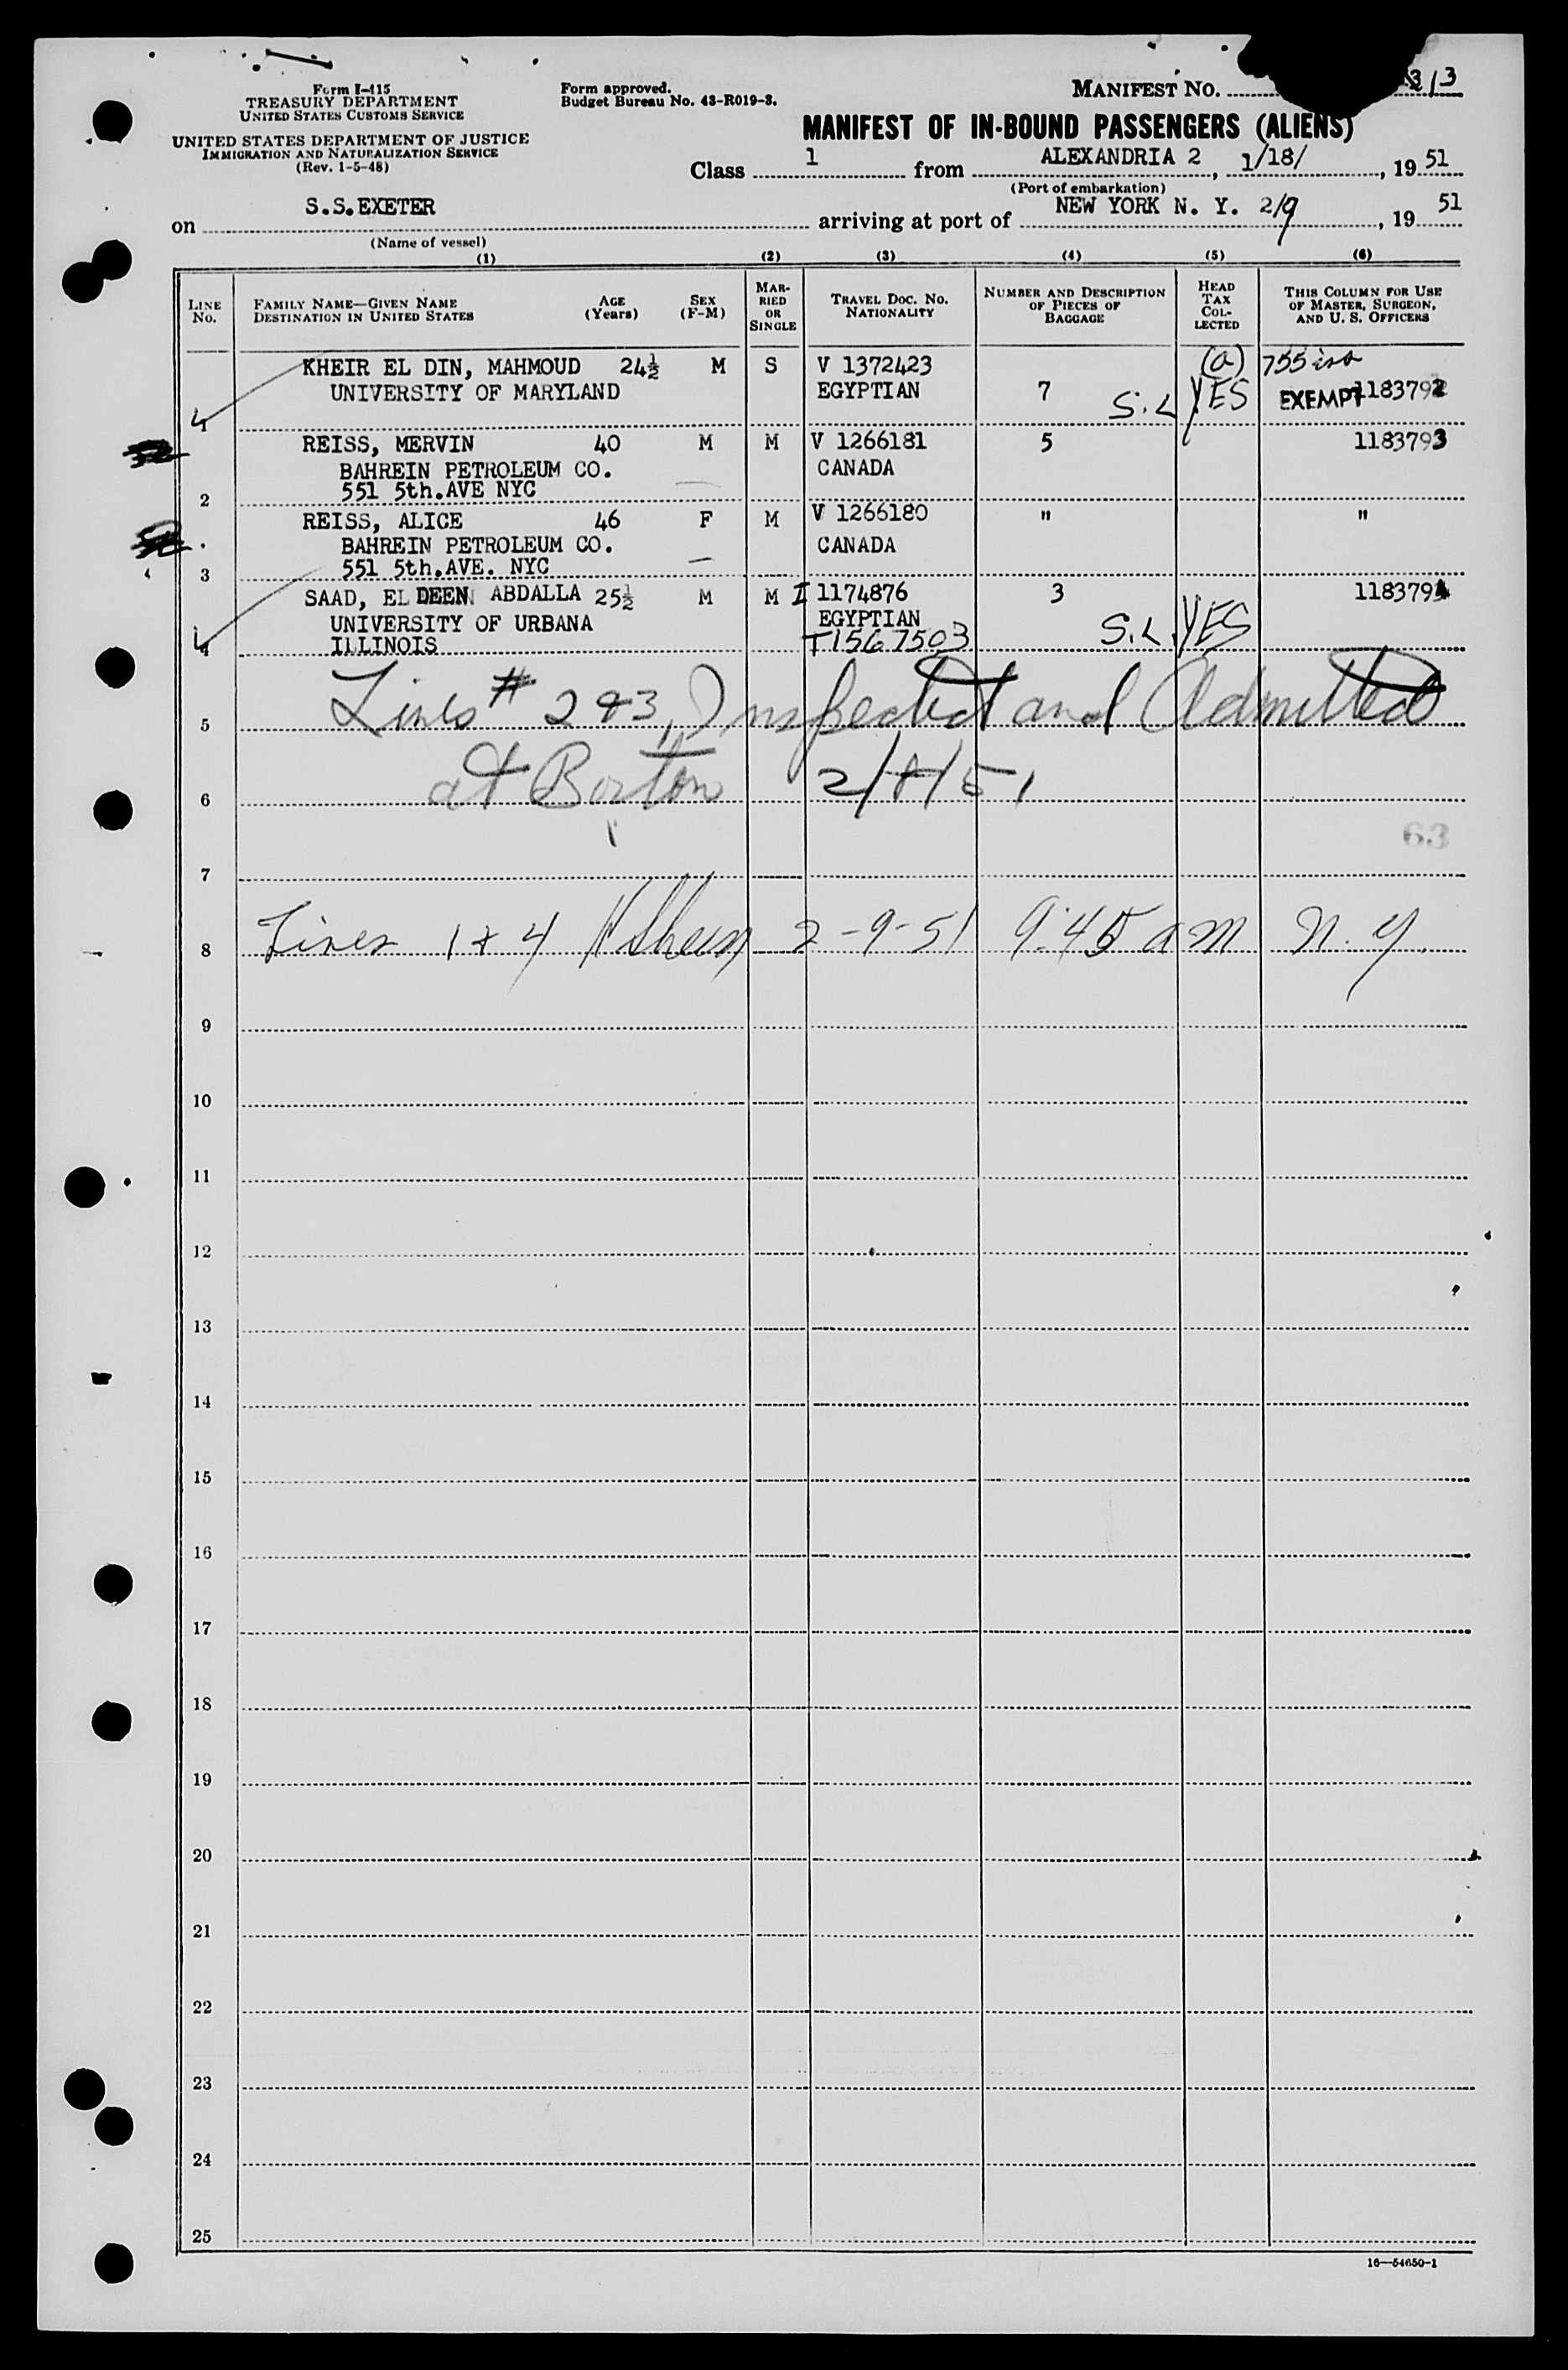 Form I-415
TREASURY DEPARTMENT
UNITED STATES CUSTOMS SERVICE
UNITED STATES DEPARTMENT OF JUSTICE
IMMIGRATION AND NATURALIZATION SERVICE
(Rev. 1-5-48)
Form approved.
Budget Bureau No. 43-R019-3.
MANIFEST NO. 3/3
MANIFEST OF IN-BOUND PASSENGERS (ALIENS)
Class 1 from ALEXANDRIA 2, 1/18/, 19 51
(Port of embarkation)
on S.S.EXETER arriving at port of NEW YORK N. Y. 2/9, 19 51
(Name of vessel)
(1) (2) (3) (4) (5) (6)
LINE NO. FAMILY NAME—GIVEN NAME DESTINATION IN UNITED STATES AGE (Years) SEX (F-M) MARRIED OR SINGLE TRAVEL DOC. NO. NATIONALITY NUMBER AND DESCRIPTION OF PIECES OF BAGGAGE HEAD TAX COLLECTED THIS COLUMN FOR USE OF MASTER, SURGEON, AND U. S. OFFICERS
KHEIR EL DIN, MAHMOUD 24½ M S V 1372423 (a) 755
UNIVERSITY OF MARYLAND EGYPTIAN 7 S.L YES EXEMPT 1183792
1
REISS, MERVIN 40 M M V 1266181 5 1183793
BAHREIN PETROLEUM CO. CANADA
2 551 5th.AVE NYC
REISS, ALICE 46 F M V 1266180 " "
BAHREIN PETROLEUM CO. CANADA
3 551 5th.AVE. NYC
SAAD, EL DEEN ABDALLA 25½ M M I 1174876 3 1183794
UNIVERSITY OF URBANA EGYPTIAN S.L. YES
4 ILLINOIS T1567503
5 Lines # 2 & 3, Inspected and Admitted
6 at Boston 2/8/51
63
7
8 Lines 1 & 4 2-9-51 9:45 am N.Y.
9
10
11
12
13
14
15
16
17
18
19
20
21
22
23
24
25
16—54650-1